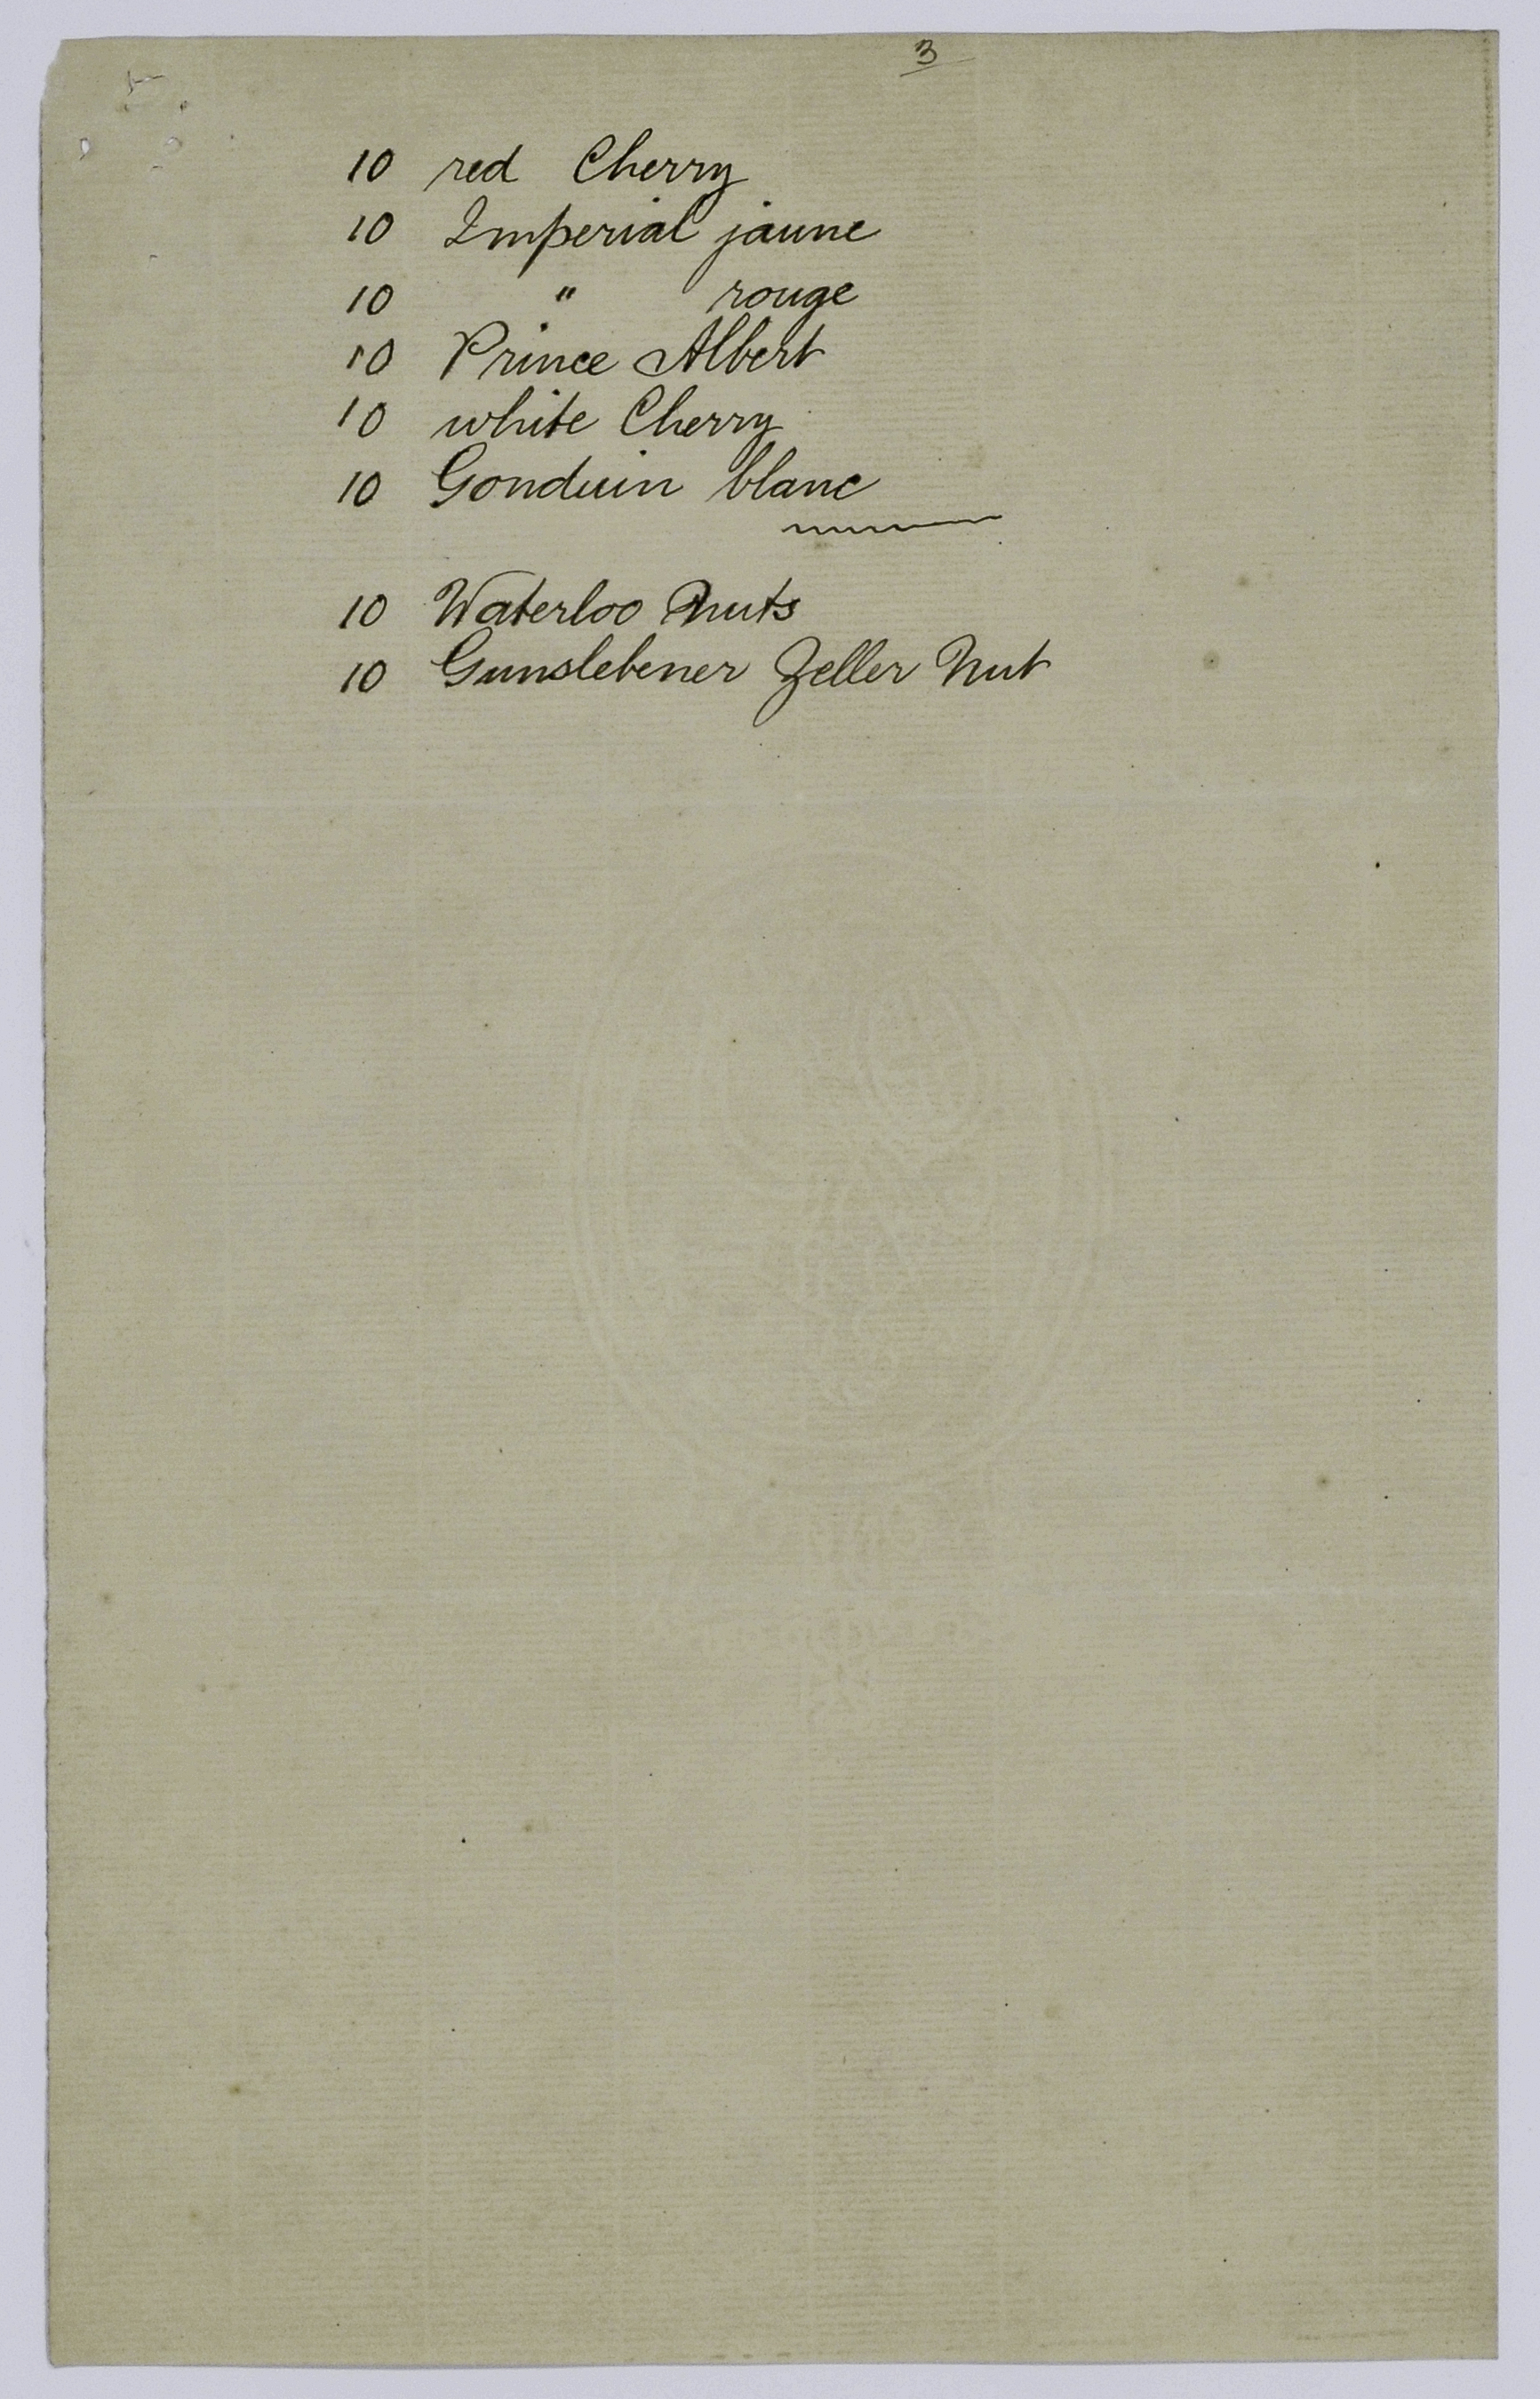 3
10 red Cherry
10 Imperial jaune
10 " rouge
10 Prince Albert
10 white Cherry
10 Gonduin blanc
10 Waterloo Nuts
10 Gunslebener Zeller Nut